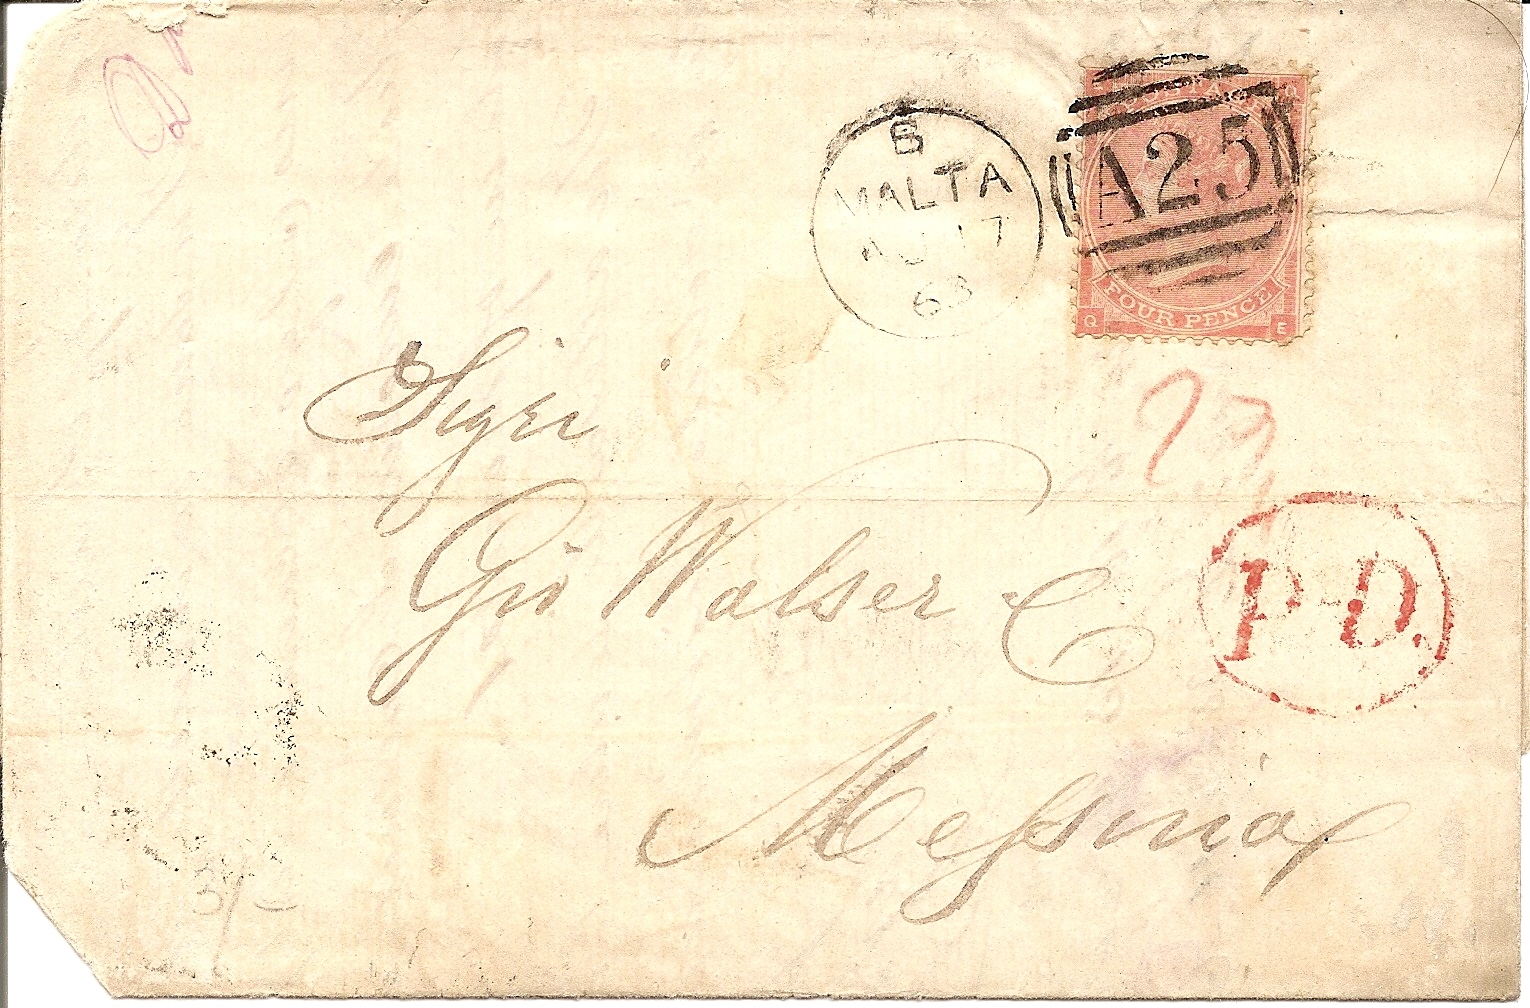 B
MALTA
AU 17
63
A25
POSTAGE
FOUR PENCE
Q E
Sigri
Gio Walser C
Messina
P.D.
3/-